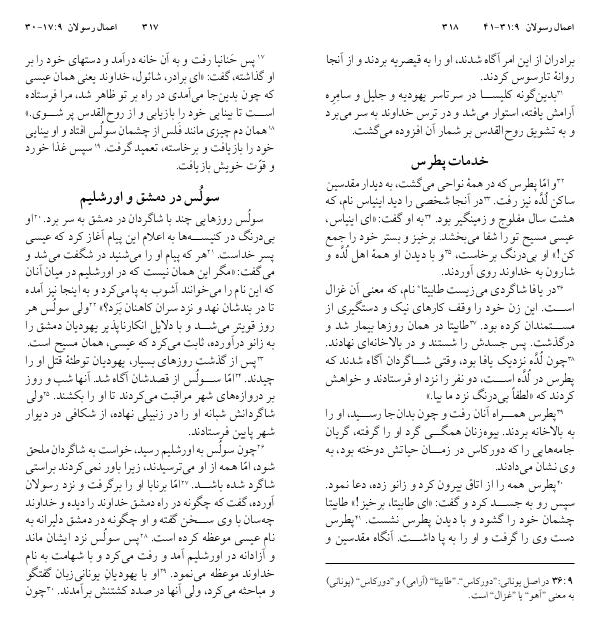 اعمال رسولان ۹:‏۱۷-۳۰
۳۱۷
۱۷پس حَنانیا رفت و به آن خانه درآمد و دستهای خود را بر
او گذاشته، گفت: «ای برادر، شائول، خداوند یعنی همان عیسی
که چون بدین‌جا می‌آمدی در راه بر تو ظاهر شد، مرا فرستاده
است تا بینایی خود را بازیابی و از روح‌القدس پر شوی.»
۱۸همان دم چیزی مانند فَلس از چشمان سولُس افتاد و او بینایی
خود را بازیافت و برخاسته، تعمید گرفت. ۱۹سپس غذا خورد
و قوّت خویش بازیافت.
سولُس در دمشق و اورشلیم
سولُس روزهایی چند با شاگردان در دمشق به سر برد. ۲۰او
بی‌درنگ در کنیسه‌ها به اعلام این پیام آغاز کرد که عیسی
پسر خداست. ۲۱هر که پیام او را می‌شنید در شگفت می‌شد و
می‌گفت: «مگر این همان نیست که در اورشلیم در میان آنان
که این نام را می‌خوانند آشوب به پا می‌کرد و به اینجا نیز آمده
تا در بندشان نهد و نزد سران کاهنان بَرَد؟» ۲۲ولی سولُس هر
روز قویتر می‌شد و با دلایل انکارناپذیر یهودیان دمشق را
به زانو درآورده، ثابت می‌کرد که عیسی، همان مسیح است.
۲۳پس از گذشت روزهای بسیار، یهودیان توطئهٔ قتل او را
چیدند. ۲۴امّا سولُس از قصدشان آگاه شد. آنها شب و روز
بر دروازه‌های شهر مراقبت می‌کردند تا او را بکشند. ۲۵ولی
شاگردانش شبانه او را در زنبیلی نهاده، از شکافی در دیوار
شهر پایین فرستادند.
۲۶چون سولُس به اورشلیم رسید، خواست به شاگردان ملحق
شود، امّا همه از او می‌ترسیدند، زیرا باور نمی‌کردند براستی
شاگرد شده باشد. ۲۷امّا برنابا او را برگرفت و نزد رسولان
آورده، گفت که چگونه در راه دمشق خداوند را دیده و خداوند
چه‌سان با وی سخن گفته و او چگونه در دمشق دلیرانه به
نام عیسی موعظه کرده است. ۲۸پس سولُس نزد ایشان ماند
و آزادانه در اورشلیم آمد و رفت می‌کرد و با شهامت به نام
خداوند موعظه می‌نمود. ۲۹او با یهودیانِ یونانی‌زبان گفتگو
و مباحثه می‌کرد، ولی آنها در صدد کشتنش برآمدند. ۳۰چون
اعمال رسولان ۹:‏۳۱-۴۱
۳۱۸
برادران از این امر آگاه شدند، او را به قیصریه بردند و از آنجا
روانهٔ تارسوس کردند.
۳۱بدین‌گونه کلیسا در سرتاسر یهودیه و جلیل و سامِره
آرامش یافته، استوار می‌شد و در ترس خداوند به سر می‌برد
و به تشویق روح‌القدس بر شمار آن افزوده می‌گشت.
خدمات پطرس
۳۲و امّا پطرس که در همهٔ نواحی می‌گشت، به دیدار مقدسین
ساکن لُدَّه نیز رفت. ۳۳در آنجا شخصی را دید اینیاس نام، که
هشت سال مفلوج و زمینگیر بود. ۳۴به او گفت: «ای اینیاس،
عیسی مسیح تو را شفا می‌بخشد. برخیز و بستر خود را جمع
کن!» او بی‌درنگ برخاست، ۳۵و با دیدن او همهٔ اهل لُدَّه و
شارون به خداوند روی آوردند.
۳۶در یافا شاگردی می‌زیست طابیتا* نام، که معنی آن غزال
است. این زن خود را وقف کارهای نیک و دستگیری از
مستمندان کرده بود. ۳۷طابیتا در همان روزها بیمار شد و
درگذشت. پس جسدش را شستند و در بالاخانه‌ای نهادند.
۳۸چون لُدَّه نزدیک یافا بود، وقتی شاگردان آگاه شدند که
پطرس در لُدَّه است، دو نفر را نزد او فرستادند و خواهش
کردند که «لطفاً بی‌درنگ نزد ما بیا.»
۳۹پطرس همراه آنان رفت و چون بدان‌جا رسید، او را
به بالاخانه بردند. بیوه‌زنان همگی گرد او را گرفته، گریان
جامه‌هایی را که دورکاس در زمان حیاتش دوخته بود، به
وی نشان می‌دادند.
۴۰پطرس همه را از اتاق بیرون کرد و زانو زده، دعا نمود.
سپس رو به جسد کرد و گفت: «ای طابیتا، برخیز!» طابیتا
چشمان خود را گشود و با دیدن پطرس نشست. ۴۱پطرس
دست وی را گرفت و او را به پا داشت. آنگاه مقدسین و
۹:‏۳۶ در اصل یونانی: "دورکاس". "طابیتا" (آرامی) و "دورکاس" (یونانی)
به معنی "آهو" یا "غزال" است.